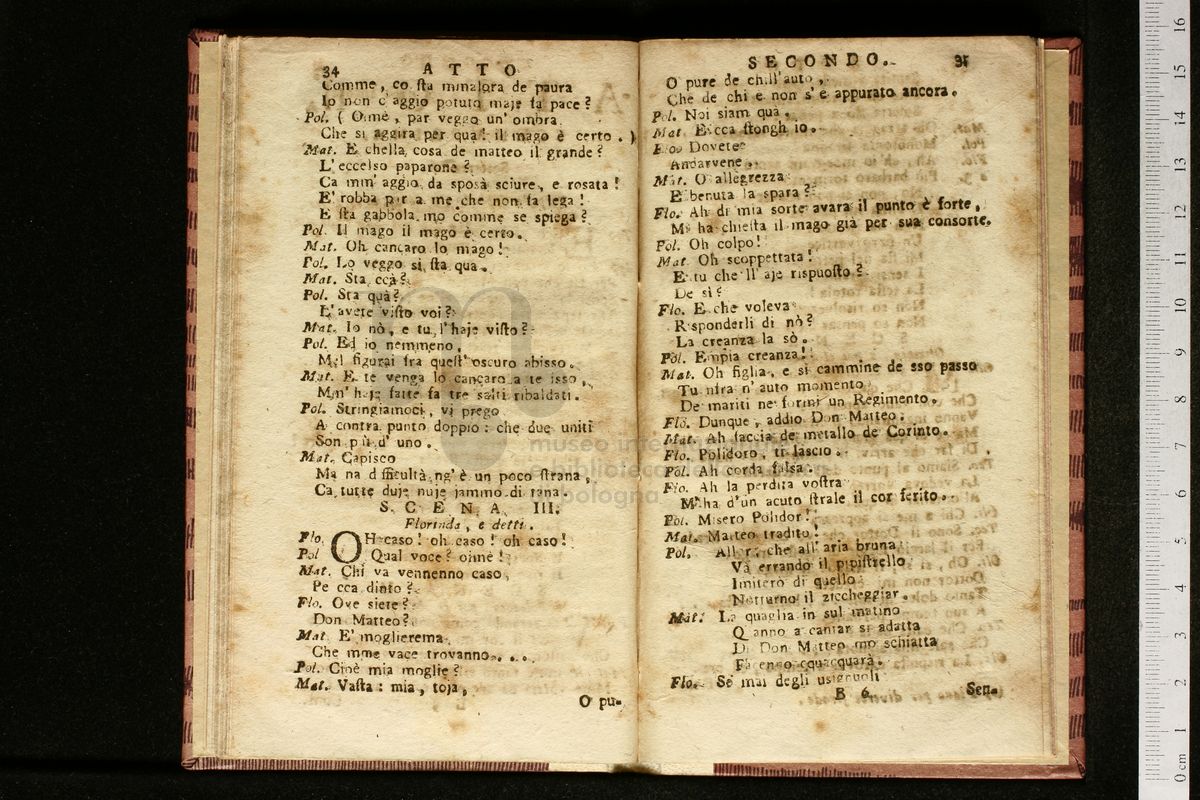 34 ATTO
Comme, co sta mmalora de paura
Io non c'aggio potuto maje fa pace?
Pol. ( Oimè, par veggo un' ombra
Che si aggira per qua! il mago è certo. )
Mat. E chella cosa de matteo il grande?
L'eccelso paparone?
Ca mm' aggio da sposà sciure, e rosata!
E' robba per a me che non fa lega!
E sta gabbola mo comme se spiega?
Pol. Il mago il mago è certo.
Mat. Oh cancaro lo mago!
Pol. Lo veggo si sta qua.
Mat. Sta ccà?
Pol. Sta quà?
L'avete visto voi?
Mat. Io nò, e tu l'haje visto?
Pol. Ed io nemmeno,
Mel figurai fra quest' oscuro abisso.
Mat. E te venga lo cancaro a te isso,
Mm' haje fatte fa tre salti ribaldati.
Pol. Stringiamoci, vi prego
A contra punto doppio: che due uniti
Son più d' uno.
Mat. Capisco
Ma na difficultà ng' è un poco strana,
Ca tutte duje nuje jammo di tana.
SCENA III.
Florinda, e detti.
Flo. OH caso! oh caso! oh caso!
Pol Qual voce? oimè!
Mat. Chi va vennenno caso
Pe cca dinto?
Flo. Ove siete?
Don Matteo?
Mat E' moglierema
Che mme vace trovanno....
Pol. Cioè mia moglie?
Mat. Vasta: mia, toja,
O pu-
SECONDO. 35
O pure de chill'auto,
Che de chi e non s'e appurato ancora.
Pol. Noi siam quà.
Mat. Ecca stongh io.
Flo. Dovete
Andarvene.
Mat. O allegrezza
E benuta la spara?
Flo. Ah di mia sorte avara il punto è forte,
Mi ha chiesta il mago già per sua consorte.
Pol. Oh colpo!
Mat Oh scoppettata!
E tu che ll'aje rispuosto?
De sì?
Flo. E che voleva
Risponderli di nò?
La creanza la sò.
Pol. Empia creanza!
Mat. Oh figlia, e si cammine de sso passo
Tu nfra n'auto momento
De mariti ne formi un Regimento.
Flo. Dunque, addio Don Matteo:
Mat. Ah faccia de metallo de Corinto.
Flo. Polidoro, ti lascio.
Pol. Ah corda falsa.
Flo. Ah la perdita vostra
M'ha d'un acuto strale il cor ferito.
Pol. Misero Polidor!
Mat. Matteo tradito!
Pol. Allor, che all' aria bruna
Va errando il pipistrello
Imiterò di quello
Notturno il ziccheggiar.
Mat. La quaglia in sul matino
Quanno a cantar si adatta
Di Don Matteo mo schiatta
Facenno cquacquarà.
Flo. Se mai degli usignuoli
B 6 Sen-
museo
biblioteca de
bologna